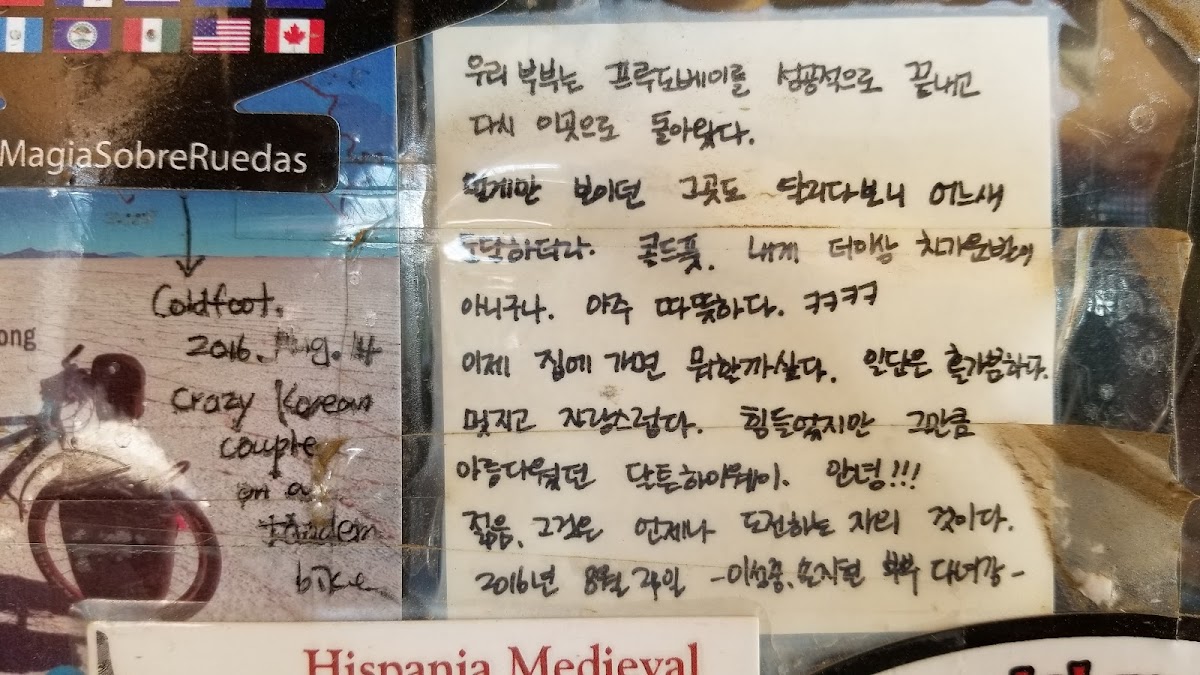 MagiaSobreRuedas
ong
Coldfoot.
2016. Aug. 14
Crazy Korean
couple
on a
tandem
bike
우리 부부는 프루도베이를 성공적으로 끝내고
다시 이곳으로 돌아왔다.
멀게만 보이던 그곳도 달리다보니 어느새
도달하더라. 콜드풋. 내게 더이상 차가운발이
아니구나. 아주 따뜻하다. ㅋㅋㅋ
이제 집에 가면 뭐할까싶다. 일단은 홀가분하다.
멋지고 자랑스럽다. 힘들었지만 그만큼
아름다웠던 달튼하이웨이. 안녕!!!
젊음, 그것은 언제나 도전하는 자리 것이다.
2016년 8월 24일 - 부부 다녀감 -
Hispania Medieval